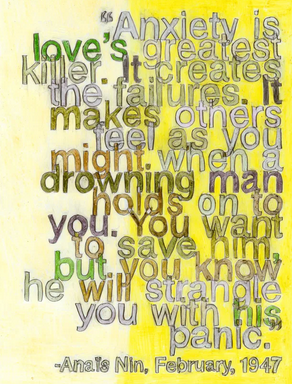 "Anxiety is
love's greatest
killer. It creates
the failures. It
makes others
feel as you
might when a
drowning man
holds on to
you. You want
to save him,
but you know
he will strangle
you with his
panic.
-Anaïs Nin, February, 1947